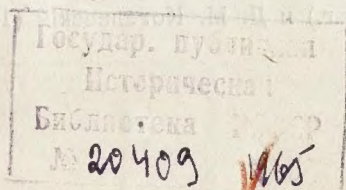 Государ. публичная
Историческая
Библиотека РСФСР
№ 20409 1965